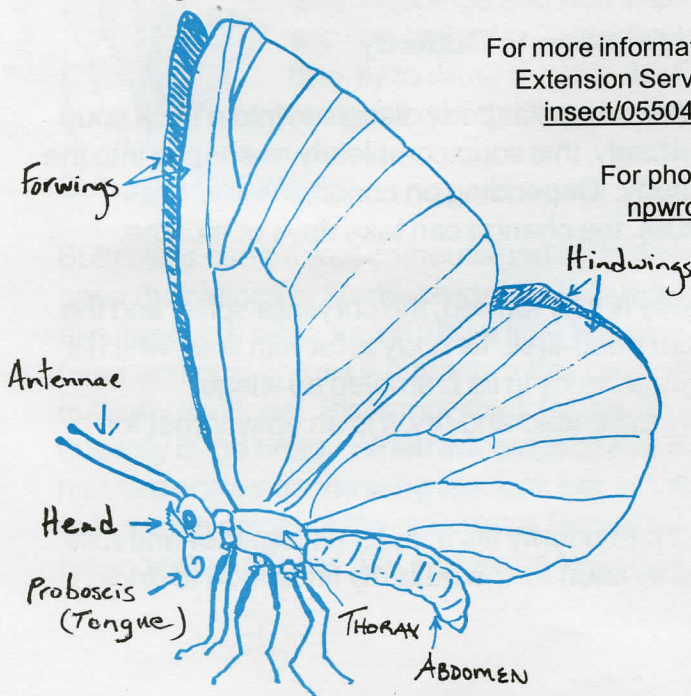 For more informat
Extension Serv
insect/05504
For pho
npwrc
Forwings
Hindwings
Antennae
Head
Proboscis
(Tongue)
THORAX
ABDOMEN